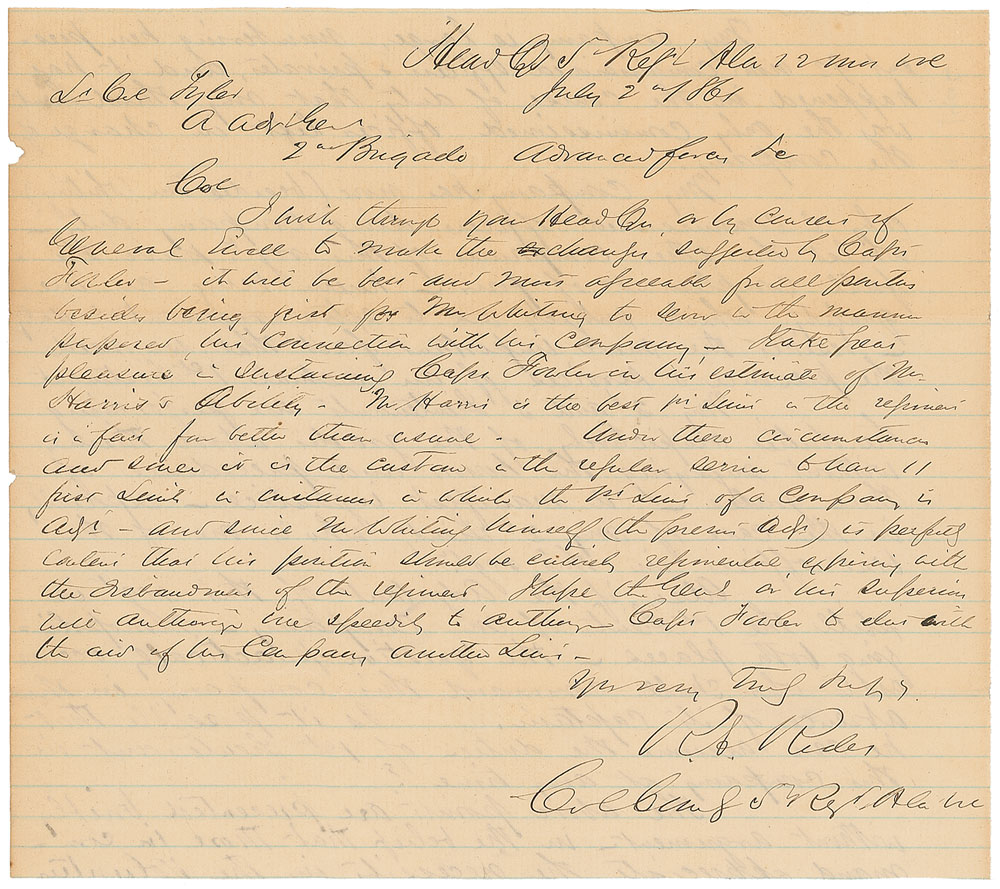 Head Qrs 5th Regt Ala 22 mm vol
July 2nd /861
Lt Col Tyler
A Adjt Genl
2nd Brigade Advanced forces &c
Col
I wish through your Head Qrs, or by consent of
General Ewell to make the changes suggested by Capt
Fowler - it will be best and most agreeable for all parties
besides being just, for Mr Whiting to sever in the manner
purposed, his connection with his company - I take great
pleasure in sustaining Capt Fowler in his estimate of Mr
Harris's Ability - Mr Harris is the best 1st Lieut in the regiment
is in fact far better than usual - Under these circumstances
and since it is the custom in the regular service to have 11
first Lieuts in instances in which the 1st Lieut of a company is
Adjt - and since Mr Whiting himself (the present Adjt) is perfectly
content that his position should be entirely regimental, expiring with
the disbandment of the regiment I hope the Genl or his superiors
will authorize me speedily to authorize Capt Fowler to elect with
the aid of his Company another Lieut -
Yours very Truly Respy
R. E. Rodes
Col Comdg 5th Regt Ala Vol